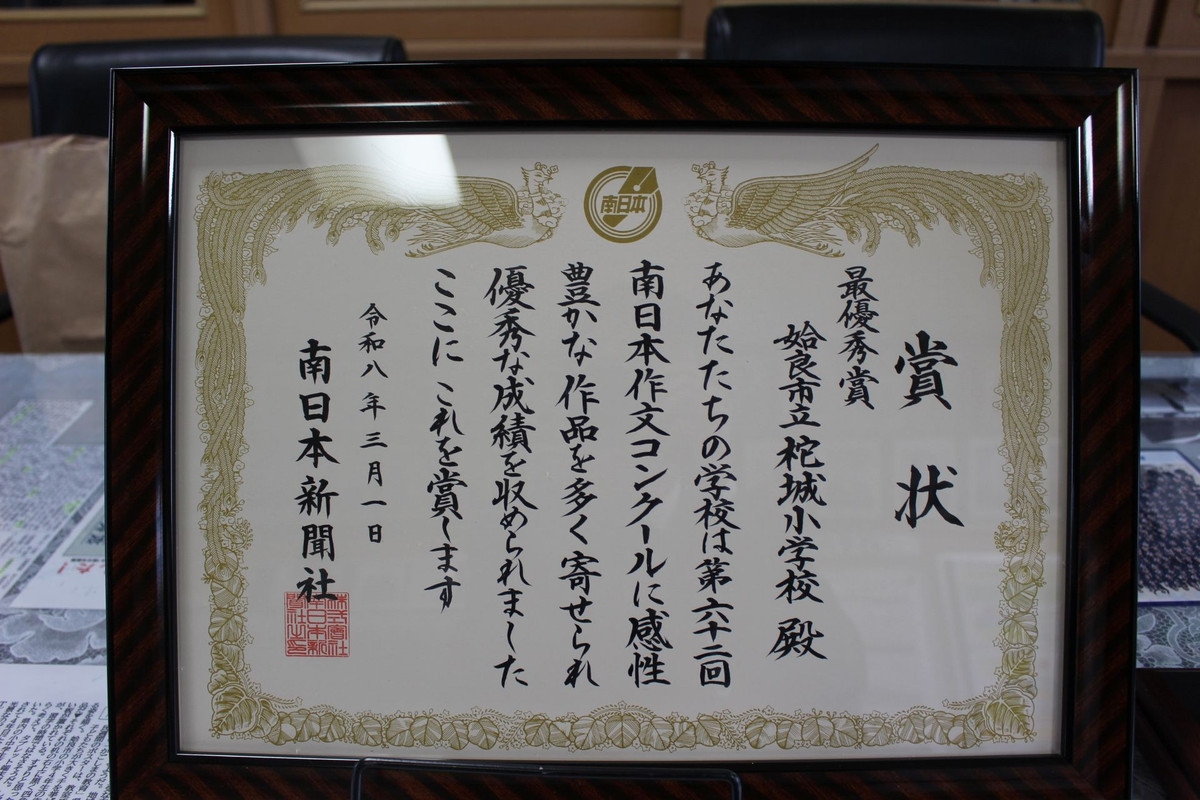 賞状
最優秀賞
姶良市立柁城小学校 殿
あなたたちの学校は第六十二回
南日本作文コンクールに感性
豊かな作品を多く寄せられ
優秀な成績を収められました
ここに これを賞します
令和八年三月一日
南日本新聞社
南日本